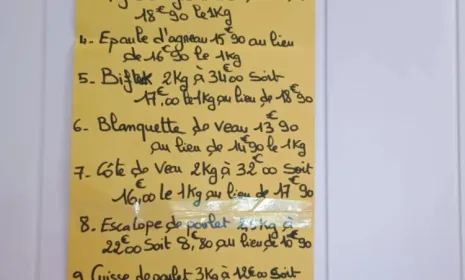 18€90 le 1Kg
4- Epaule d'agneau 15€90 au lieu
de 16€90 le 1Kg
5- Biftek 2Kg à 34€00 soit
17€,00 le 1Kg au lieu de 18€90
6- Blanquette de veau 13€90
au lieu de 14€90 le 1Kg
7- Côte de Veau 2Kg à 32€00 soit
16€,00 le 1Kg au lieu de 17€90
8- Escalope de poulet 2,5Kg à
22€00 soit 8€,80 au lieu de 10€90
9 Cuisse de poulet 3Kg à 12€00 soit